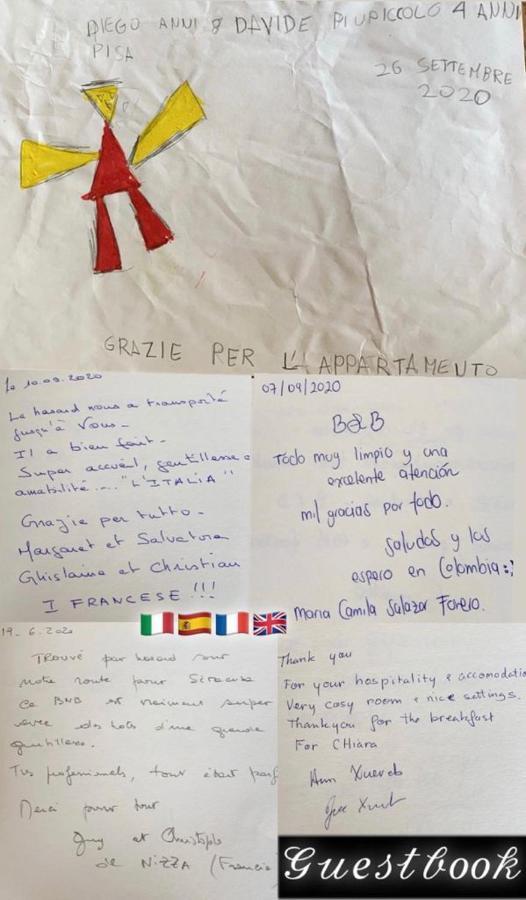 DIEGO ANNI 8 DAVIDE PIUPICCOLO 4 ANNI
PISA
26 SETTEMBRE
2020
GRAZIE PER L'APPARTAMENTO
le 10.09.2020
Le hasard nous a transporté
jusqu'à Vous -
Il a bien fait -
Super accueil, gentillesse e
amabilité.... "L'ITALIA"
Grazie per tutto -
Margaret et Salvatore
Ghislaine et Christian
I FRANCESE !!!
07/09/2020
B&B
Todo muy limpio y una
excelente atención
mil gracias por todo.
saludos y los
espero en Colombia :)
Maria Camila Salazar Forero.
19_6.2020
Trouvé par hasard sur
notre route pour Siracusa
ce BNB est vraiment super
avec des hôts d'une grande
gentillesse.
professionnels, tout était parf
Merci pour tout
Guy et Christophe
de NIZZA (Francia
Thank you
For your hospitality & accomodatio
Very cosy room & nice settings.
Thankyou for the breakfast
For CHiara
Guestbook